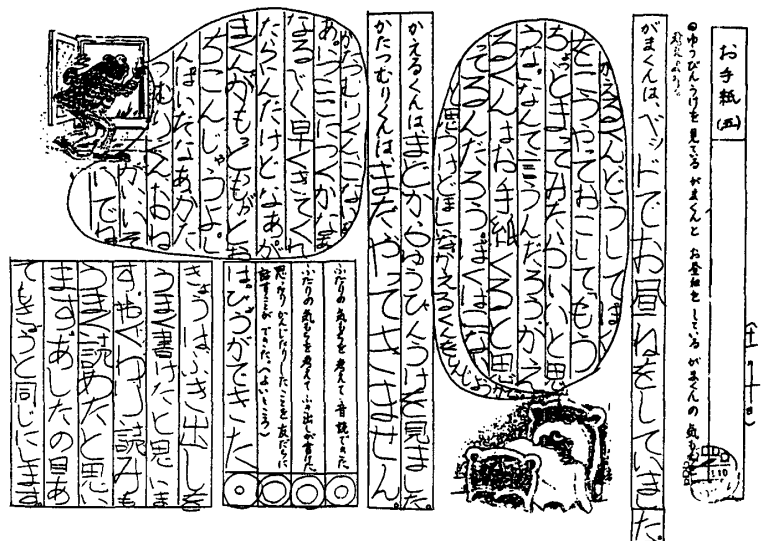 お手紙(五)
(土)(十日)
◎ゆうびんうけを見ているがまくんと お昼ねをしているがまくんの気もちを
がまくんは、ベッドでお昼ねをしていました。
かえるくんどうしてぼく
をこうやっておこしてもう
ちょっとまってみたらいいと思
うなんて言うんだろうかえ
るくんはお手紙くると思
ってるんだろう。ぼくはこない
と思うけどほしい
かえるくんは、まどからゆうびんうけを見ました。
かたつむりくんは、まだやってきません。
かたつむりくんこないな
あいつここにつくかなあ
なるべく早くきてくれ
たらいんだけどなあ。が
まくんがもっともがとお
ちこんじゃうよ。し
んぱいだなあかた
つむりくんおね
がいそ
いでね
ふたりの気もちを考えて 音読できた。
ふたりの気もちを考えてふき出しが書けた。
思ったりかんじたりしたことを友だちに
話すことができた。(よいところ)
はっぴょうができた
きょうはふき出しを
うまく書けたと思いま
す。やくわり読みも
うまく読めたと思い
ます。あしたの日あ
てもきょうと同じにします。